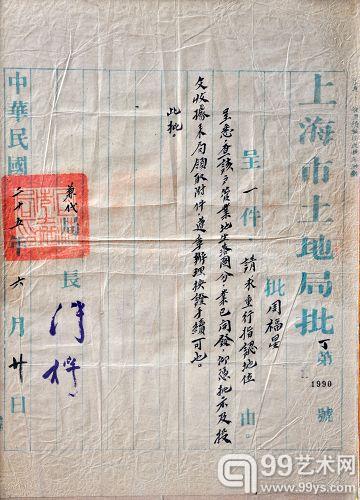 上海市土地局批 丁第1990號
批周福星
呈一件 請求重行指認地位 由
呈悉查該戶管業地坐落圖分業已開發仰憑批示及投
文收據來局領取附件遵章辦理換證手續可也。
此批。
兼代局長
中華民國二十五年六月廿日
99艺术网
www.99ys.com